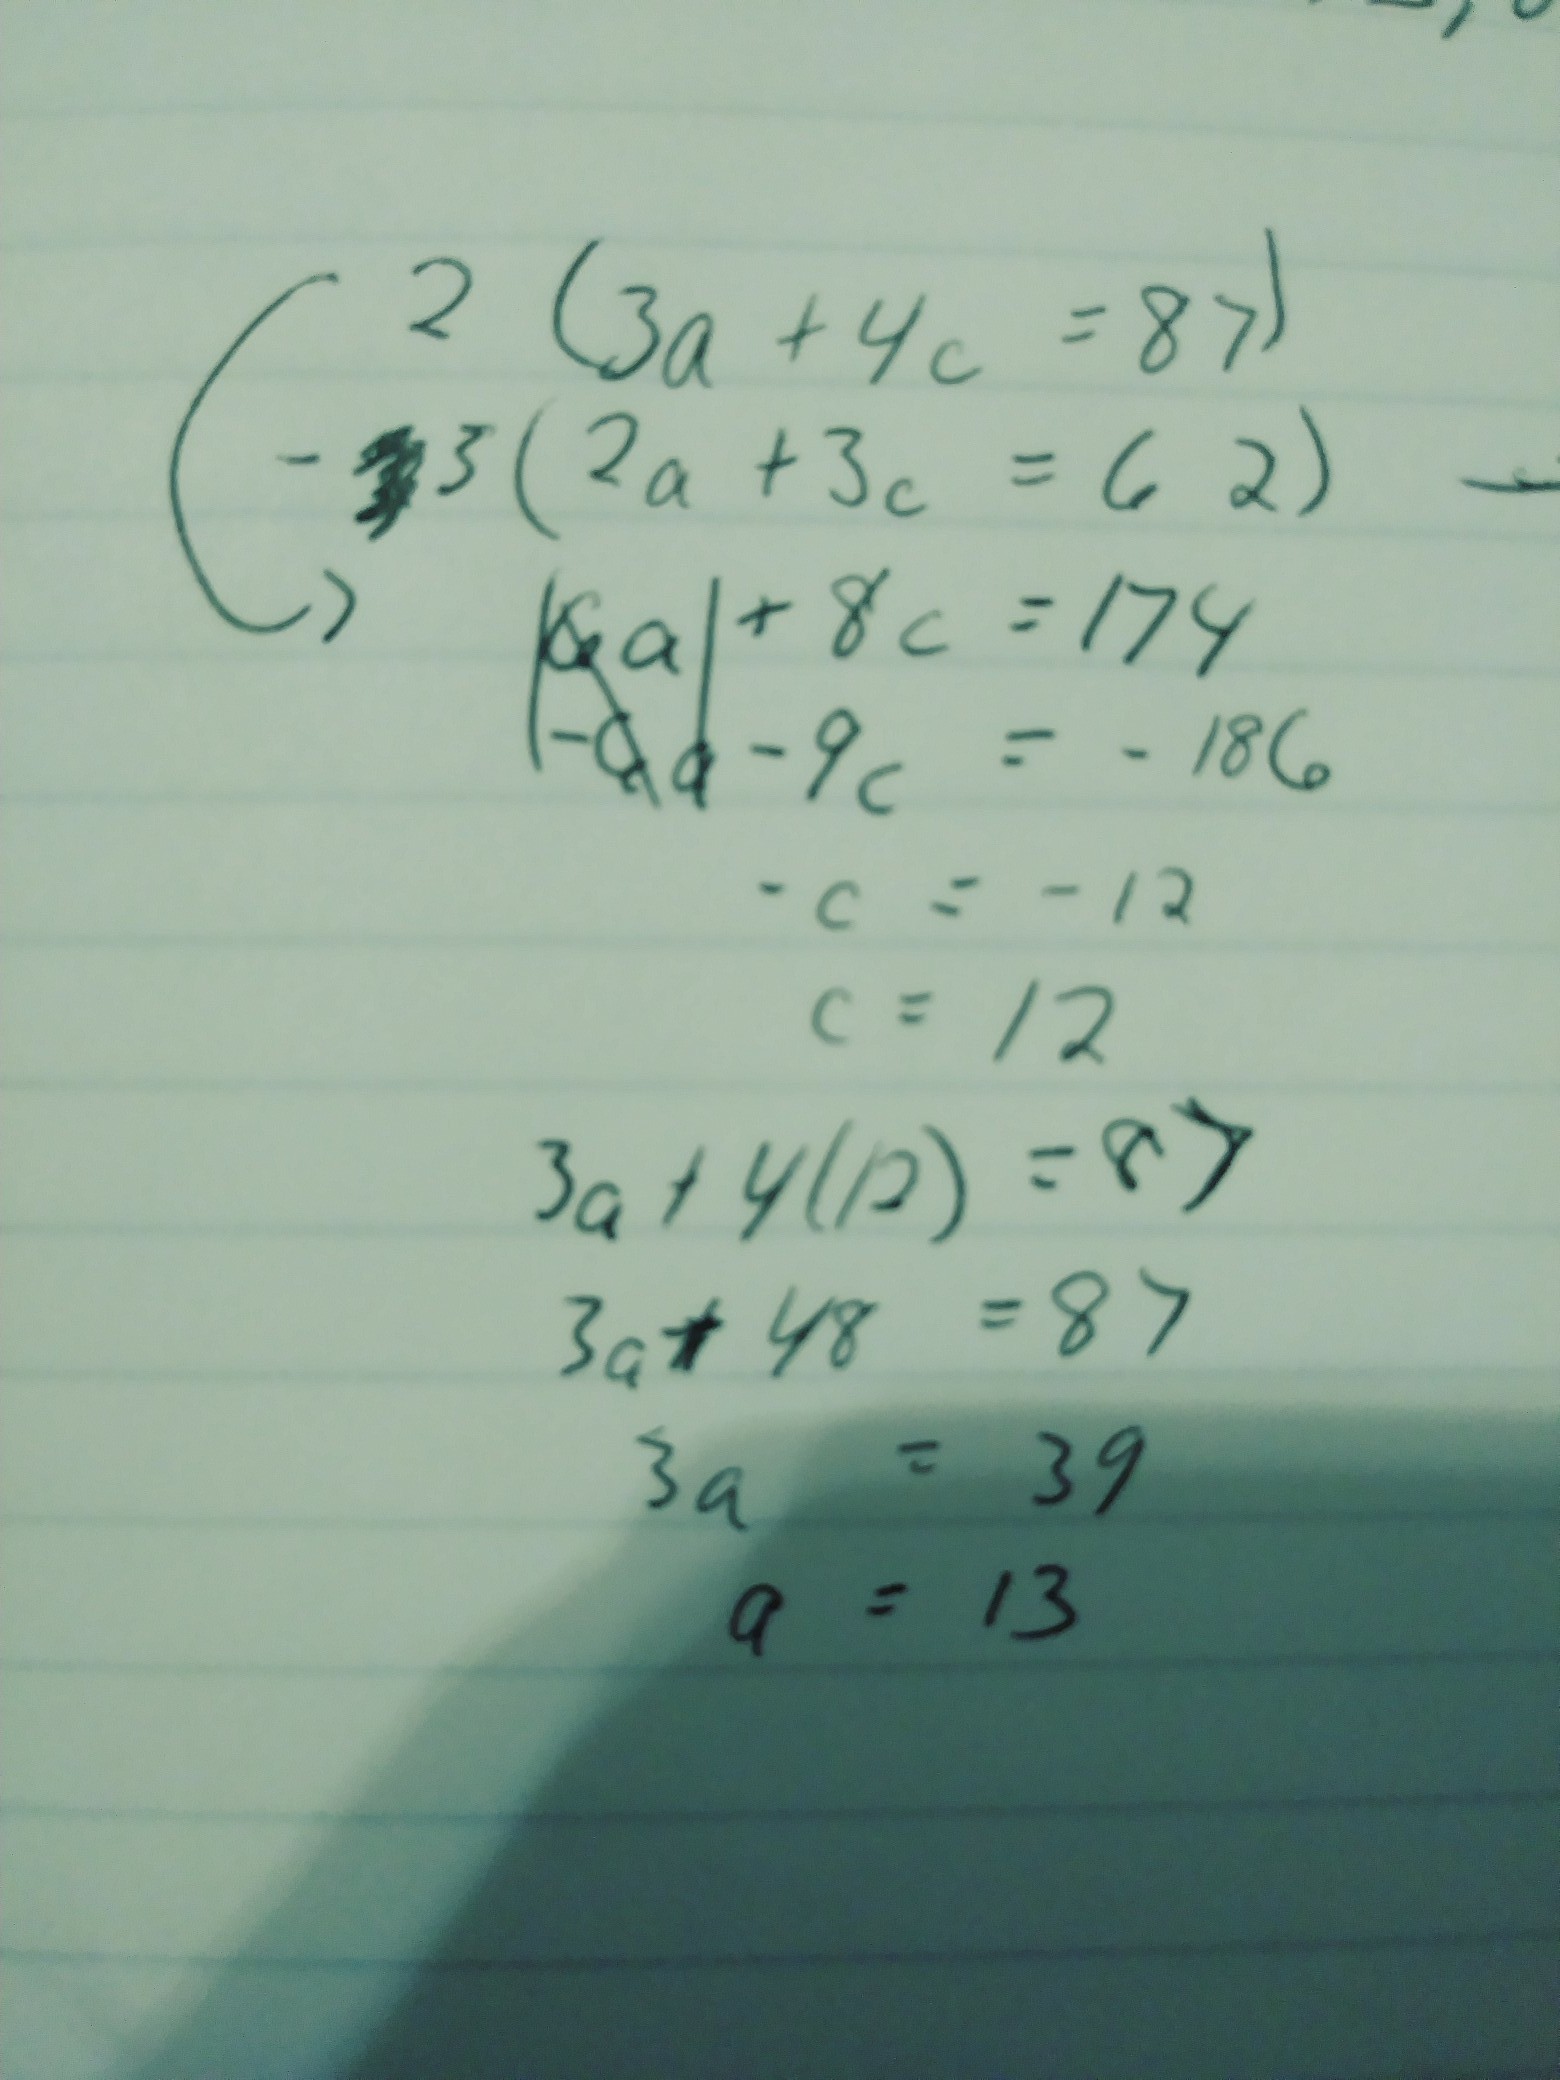 2 (3a + 4c = 87)
- 3 (2a + 3c = 62)
6a + 8c = 174
-6a - 9c = - 186
- c = - 12
c = 12
3a + 4(12) = 87
3a + 48 = 87
3a = 39
a = 13